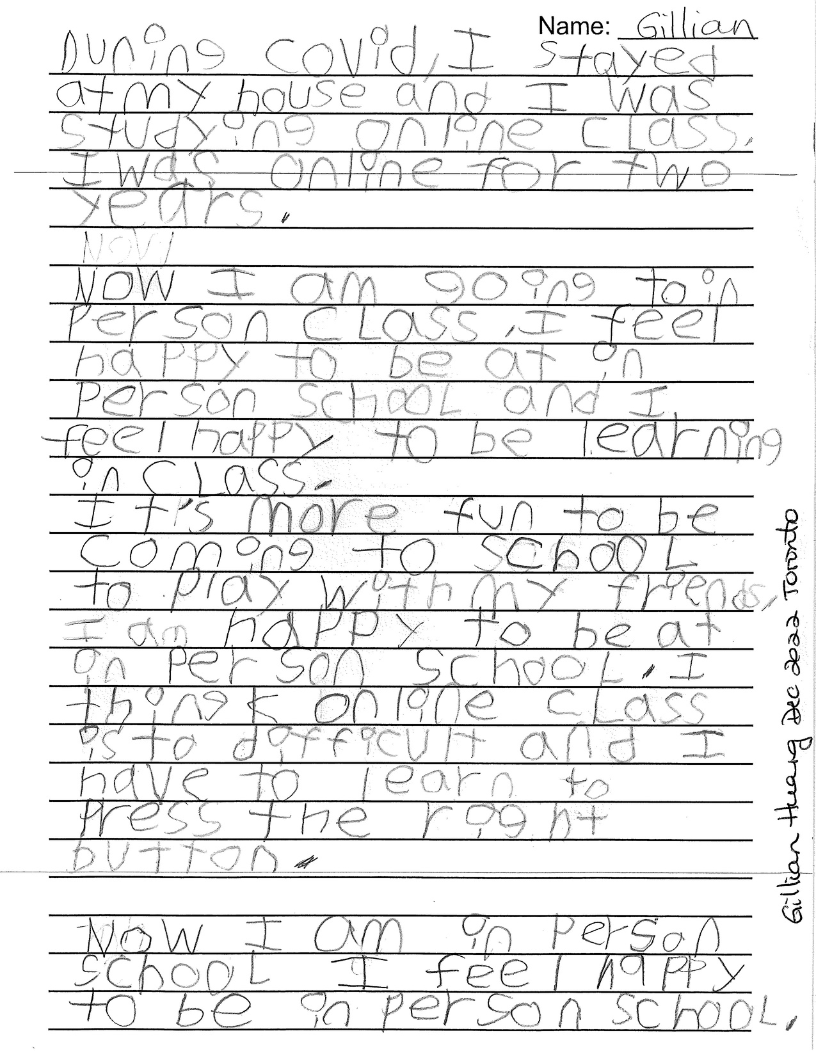 Name: Gillian
During covid, I stayed
at my house and I was
studying online class.
I was online for two
years.
Now
Now I am going to in
person class. I feel
happy to be at in
person school and I
feel happy to be learning
in class.
I t's more fun to be
coming to school
to play with my friends,
I am happy to be at
in person school. I
thingk online class
is to difficult and I
have to learn to
press the right
button.
Now I am in person
school I feel happy
to be in person school.
Gillian Huang Dec 2022 Toronto